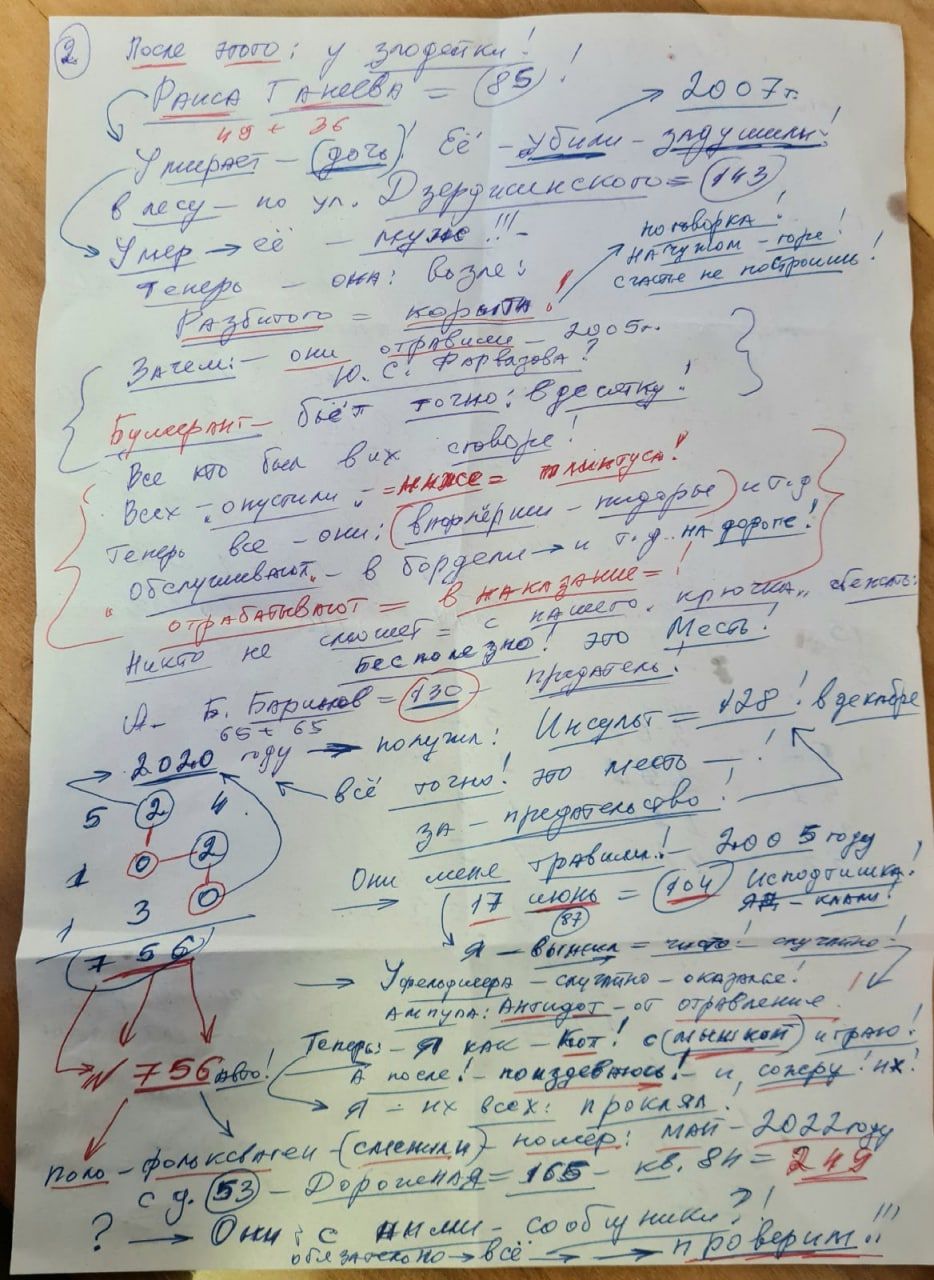 2. После этого: у злодейки!
Раиса Ганеева = 85 !
49 + 36
2007г.
Умирает - (дочь)! Её - убили - задушили!
в лесу - по ул. Дзержинского = 143
Умер → её - муж !!! -
поговорка!
На чужом - горе!
счастье не построишь!
Теперь - она: возле:
Разбитого = корыта!
Зачем: - они отравили - 2005г.
Ю. С. Фарвазова?
Бумеранг - бьёт точно: в десятку!
Все кто был в их сговоре!
Всех - "опустили" - = ниже = плинтуса!
Теперь все - они: (вафлёрши - пидоры) и т.д
"Обслуживают" - в бордели → и т.д. на дороге!
отрабатывают = в наказание = !
Никто не сможет = с нашего "крючка" сбежать:
Бесполезно! это Месть!
А. Б. Баринов = 130 - предатель!
65 + 65
2020 году → получил: Инсульт = 128! в декабре
всё точно! это месть - !
за - предательство!
5 2 4
1 0 2
1 3 0
7 5 6
Они меня травили! - 2005 году
→ 17 июнь = 104 исподтишка!
87
яд - клали!
Я - выжил = чисто! случайно!
→ У фельдшера - случайно - оказалось!
Ампула: Антидот - от отравления
Теперь: - Я как - Кот! с (мышкой) играю!
N 756 авто!
А после! - поиздеваюсь! - и сожру! их!
Я = их всех: проклял!
поло - фольксваген - (сменили) - номер: май - 2022 году
с д. 53 - Дорожная = 165 - кв. 84 = 249
? → Они: с ними - сообщники?!
обязательно → всё → → проверим!!!